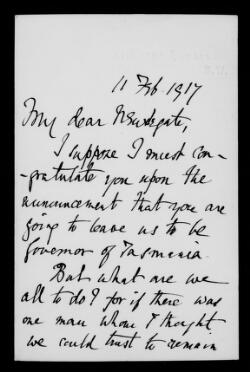 11 Feb 1917
My dear Newdegate,
I suppose I must con-
-gratulate you upon the
announcement that you are
going to leave us to be
Governor of Tasmania.
But what are we
all to do? for if there was
one man whom I thought
we could trust to remain